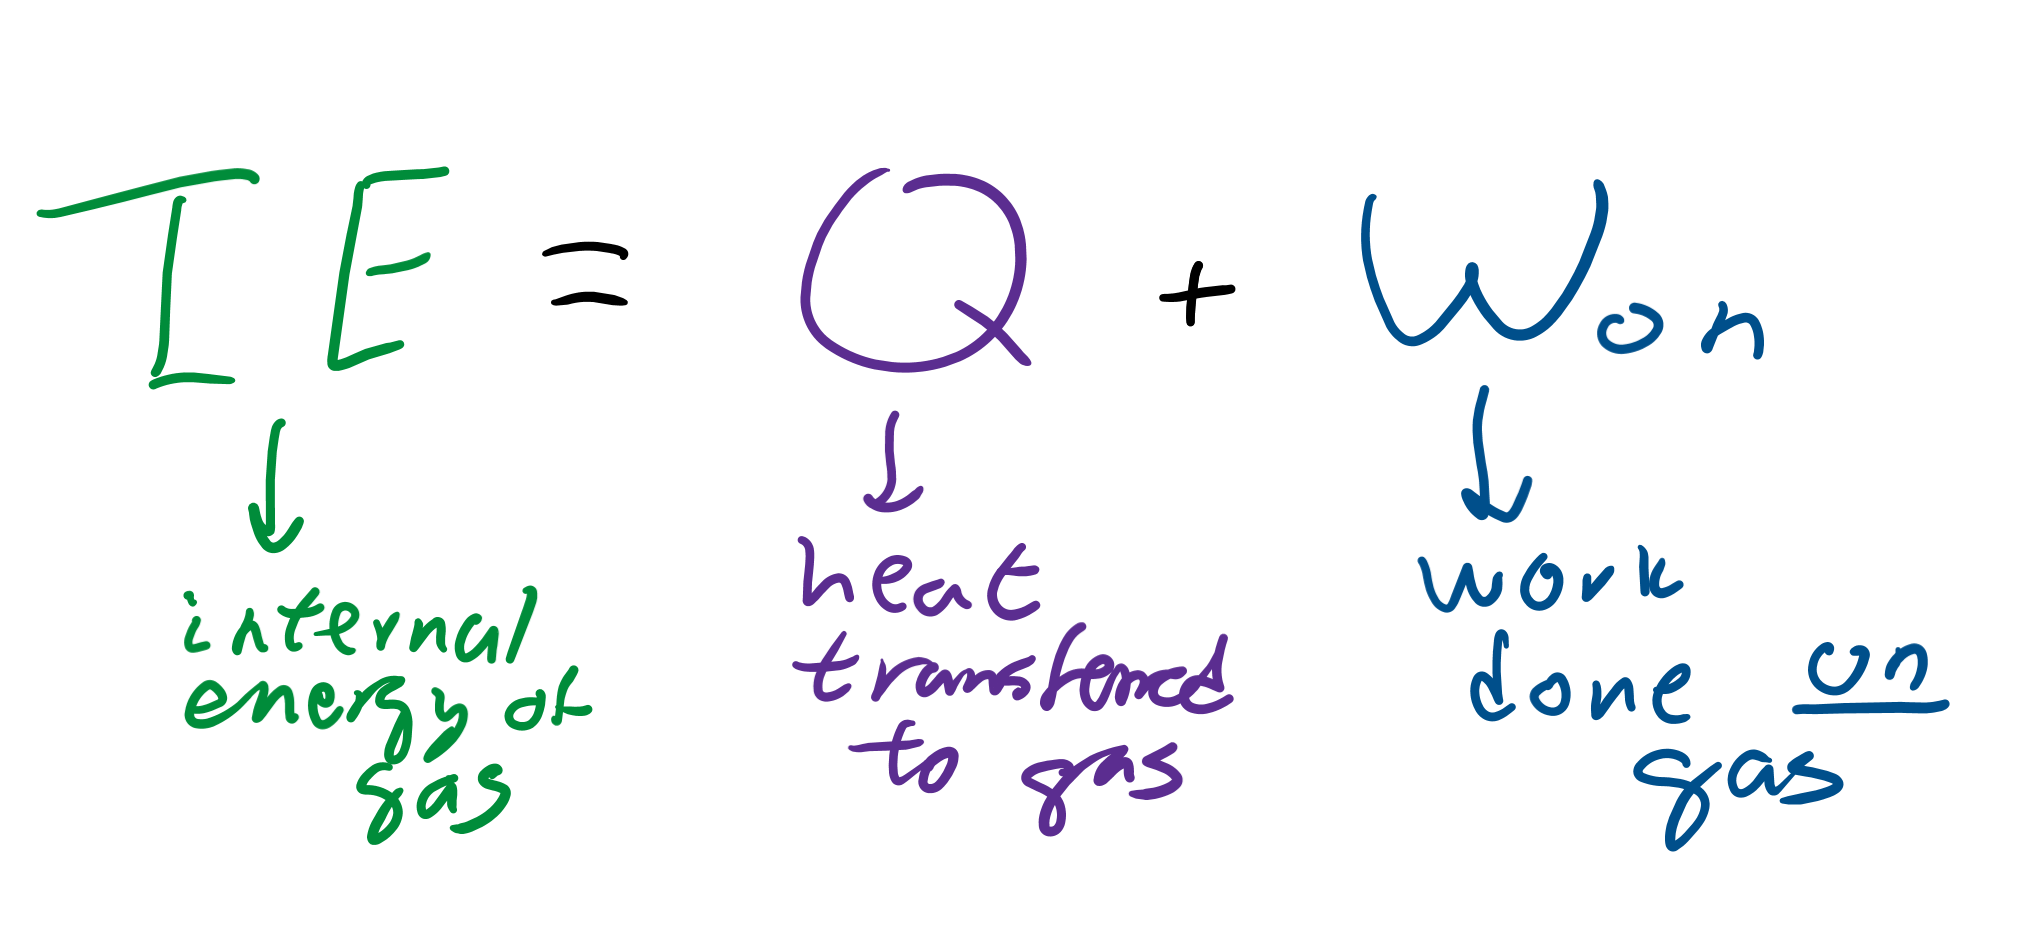 IE = Q + Won
internal
energy of
gas
heat
transferred
to gas
work
done on
gas